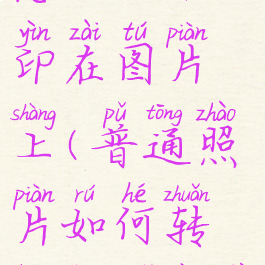 yìn zài tú piàn
印在图片
shàng pǔ tōng zhào
上(普通照
piàn rú hé zhuǎn
片如何转